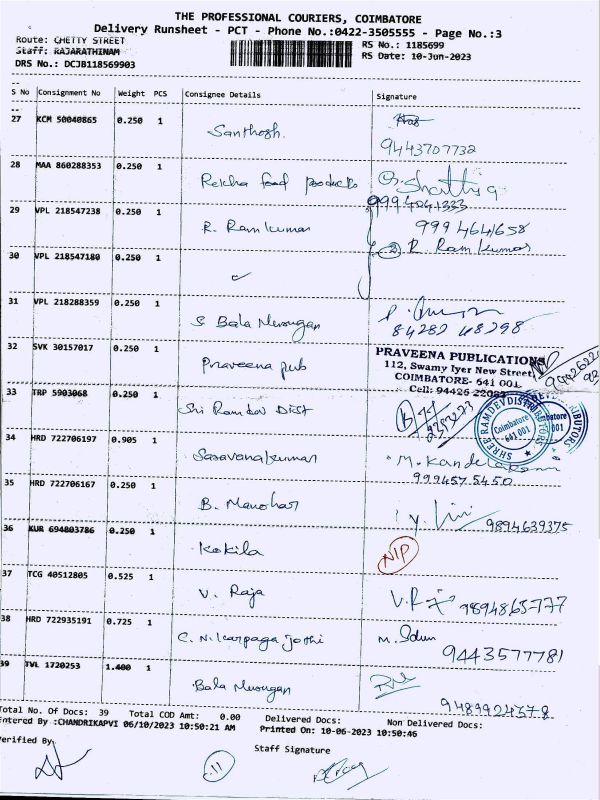 THE PROFESSIONAL COURIERS, COIMBATORE
Delivery Runsheet - PCT - Phone No.:0422-3505555 - Page No.:3
Route: CHETTY STREET RS No.: 1185699
Staff: RAJARATHINAM RS Date: 10-Jun-2023
DRS No.: DCJB118569903
S No Consignment No Weight PCS Consignee Details Signature
27 KCM 50040865 0.250 1 Santhosh.
9443707732
28 MAA 860288353 0.250 1 Rekha food products
9994041333
29 VPL 218547238 0.250 1 R. Ram kumar 999 4641658
② R. Ram kumar
30 VPL 218547180 0.250 1
31 VPL 218288359 0.250 1 S. Bala Murugan
84282 48298
32 SVK 30157017 0.250 1 Praveena pub
PRAVEENA PUBLICATIONS
112, Swamy Iyer New Street
COIMBATORE- 641 001
33 TRP 5903068 0.250 1 Sri Ramdev Dist
SHREE RAMDEV DISTRIBUTORS
Coimbatore
641 001
34 HRD 722706197 0.905 1 Saravanakumar
999457 5450
35 HRD 722706167 0.250 1 B. Manohar
9894639375
36 KUR 694803786 0.250 1 Kokila NIP
37 TCG 40512805 0.525 1 V. Raja 9894865777
38 HRD 722935191 0.725 1 C. N. Karpaga Jothi
9443577781
39 TVL 1720253 1.400 1 Bala Murugan
9489924378
Total No. Of Docs: 39 Total COD Amt: 0.00 Delivered Docs: Non Delivered Docs:
Entered By :CHANDRIKAPVI 06/10/2023 10:50:21 AM Printed On: 10-06-2023 10:50:46
Verified By Staff Signature
11